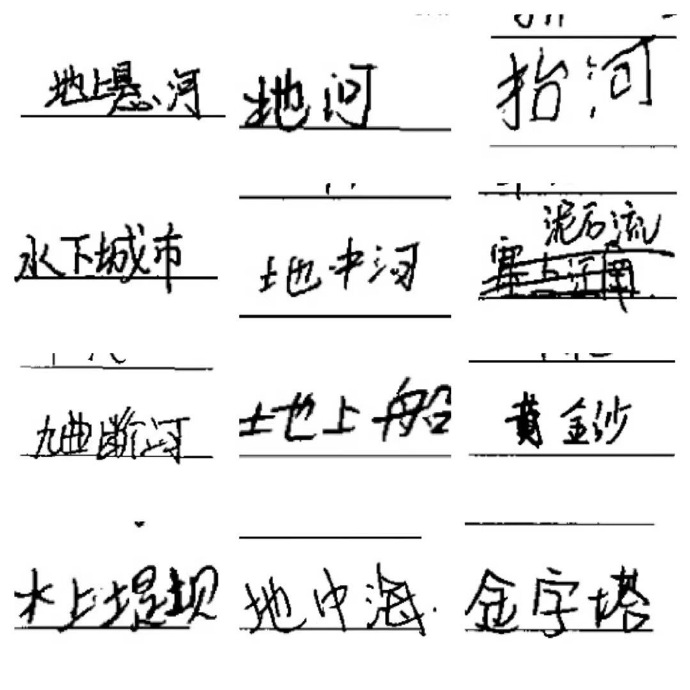 地上悬河 地河 抬河
水下城市 地中河 泥石流
九曲断河 地上船 黄金沙
水上堤坝 地中海 金字塔